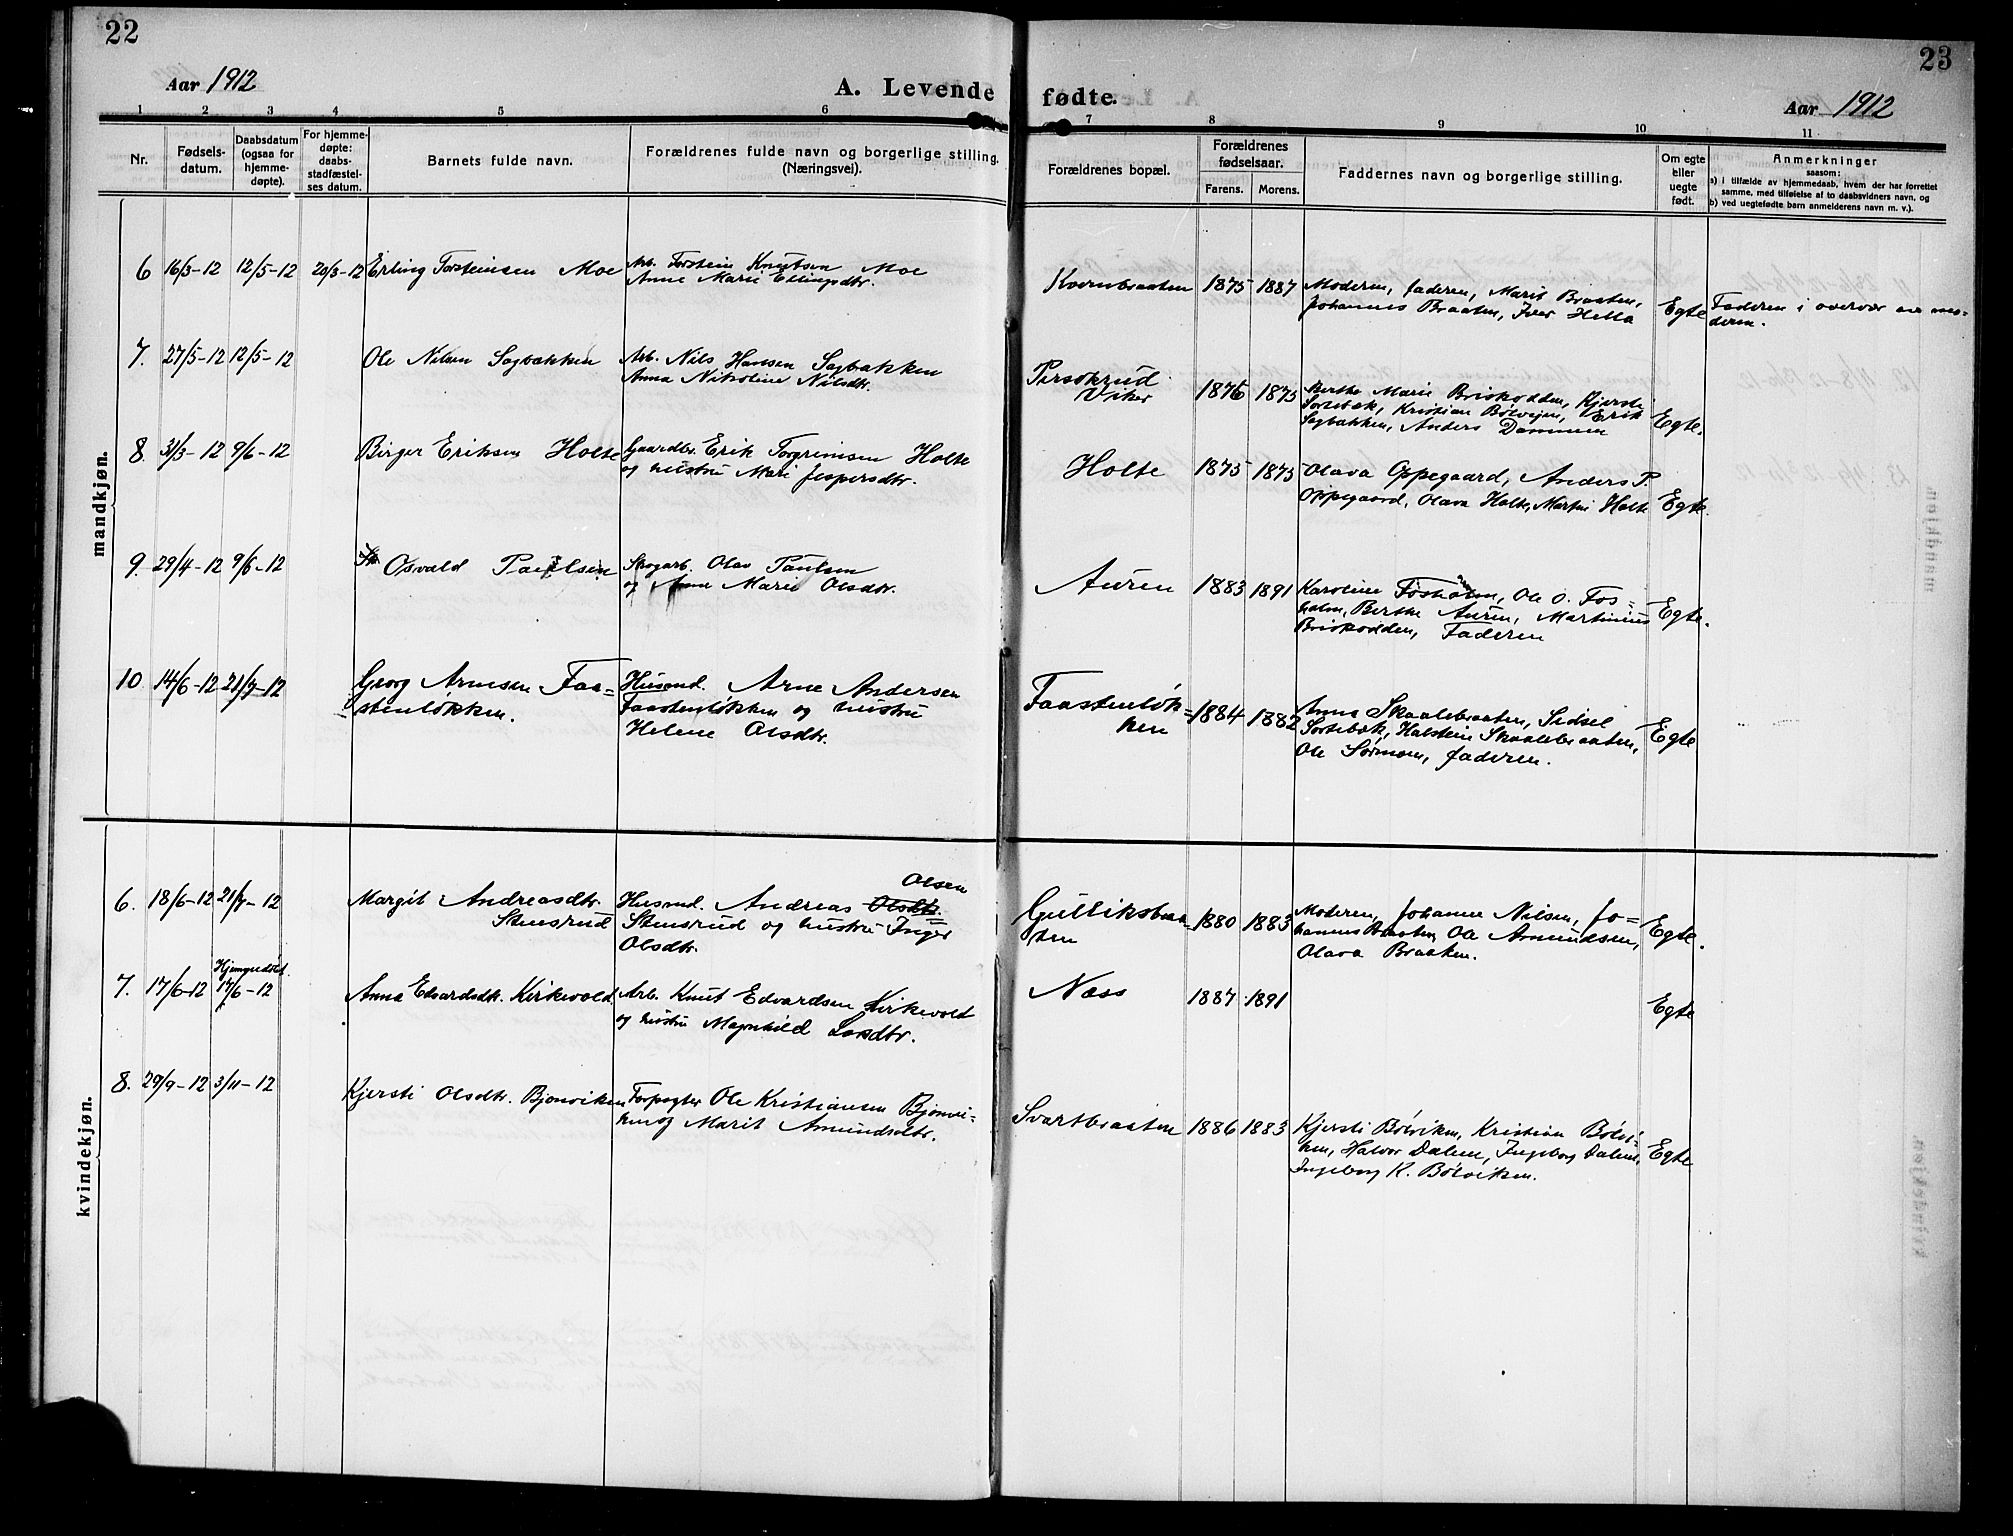 22
23
Aar 1912
A. Levende fødte.
Aar 1912
1 2 3 4 5 6 7 8 9 10 11
Nr.
Fødsels-
datum.
Daabsdatum
(ogsaa for
hjemme-
døpte).
For hjemme-
døpte:
daabs-
stadfæstel-
ses datum.
Barnets fulde navn.
Forældrenes fulde navn og borgerlige stilling.
(Næringsvei).
Forældrenes bopæl.
Forældrenes
fødselsaar.
Farens. Morens.
Faddernes navn og borgerlige stilling.
Om egte
eller
uegte
født.
Anmerkninger
saasom:
a) i tilfælde av hjemmedaab, hvem der har forrettet
samme, med tilføielse af to daabsvidners navn, og
b) ved uegtefødte barn anmelderens navn m. v.).
mandkjøn.
6 16/3-12 12/5-12 20/3-12 Erling Torsteinsen Moe
Arb. Torstein Knutsen Moe
Anne Marie Ellingsdtr.
Kvernbraaten 1875 1887
Moderen, faderen, Marit Braaten,
Johannes Braaten, Iver Hella
Egte
Faderen i overvær av mo-
deren.
7. 27/5-12 12/5-12 Ole Nilsen Sagbakken
Arb. Nils Hansen Sagbakken
Anna Nikoline Nilsdtr.
Persokrud
Viker
1876 1875
Berthe Marie Briskodden, Kjersti
Sortebæk, Kristian Bølvejen, Erik
Sagbakken, Anders Dammen
Egte.
8. 31/3-12 9/6-12 Birger Eriksen Holte
Gaardbr. Erik Torgrimsen Holte
og hustru Mari Jespersdtr.
Holte 1875 1875
Olava Oppegaard, Anders P.
Oppegaard, Olava Holte, Martin Holte
Egte.
9. 29/4-12 9/6-12 Osvald Paulsen
Skogarb. Olav Paulsen
og Anne Marie Olsdtr.
Auren 1883 1891
Karoline Fosholm, Ole O. Fos-
holm, Berthe Auren, Martinius
Briskodden, Faderen
Egte.
10 14/6-12 21/7-12 Georg Arnesen Faa-
stenløkken.
Husmd. Arne Andersen
Faastenløkken og hustru
Helene Olsdtr.
Faastenløk-
ken
1884 1882
Anna Skaalebraaten, Sidsel
Sortebæk, Halstein Skaalebraaten,
Ole Sørmoen, faderen.
Egte
kvindekjøn.
6. 18/6-12 21/7-12 Margit Andreasdtr.
Stensrud
Olsen
Husmd. Andreas Olsdtr.
Stensrud og hustru Inger
Olsdtr.
Gulliksbraa-
ten
1880 1883
Moderen, Johanne Nilsen, Jo-
hannes Braaten, Ole Amundsen,
Olava Braaten.
Egte.
7. 17/6-12 Hjemmedøbt.
17/6-12 Anna Edvardsdtr. Kirkevold
Arb. Knut Edvardsen Kirkevold
og hustru Magnhild Larsdtr.
Næss 1887 1891
Egte
8. 29/9-12 3/11-12 Kjersti Olsdtr. Bjonviken
Forpagter Ole Kristiansen Bjonvi-
ken og Marit Amundsdtr.
Svartbraaten 1886 1883
Kjersti Bølviken, Kristian Bølvi-
ken, Halvor Dalen, Ingeborg Dalen,
Ingeborg K. Bølviken.
Egte